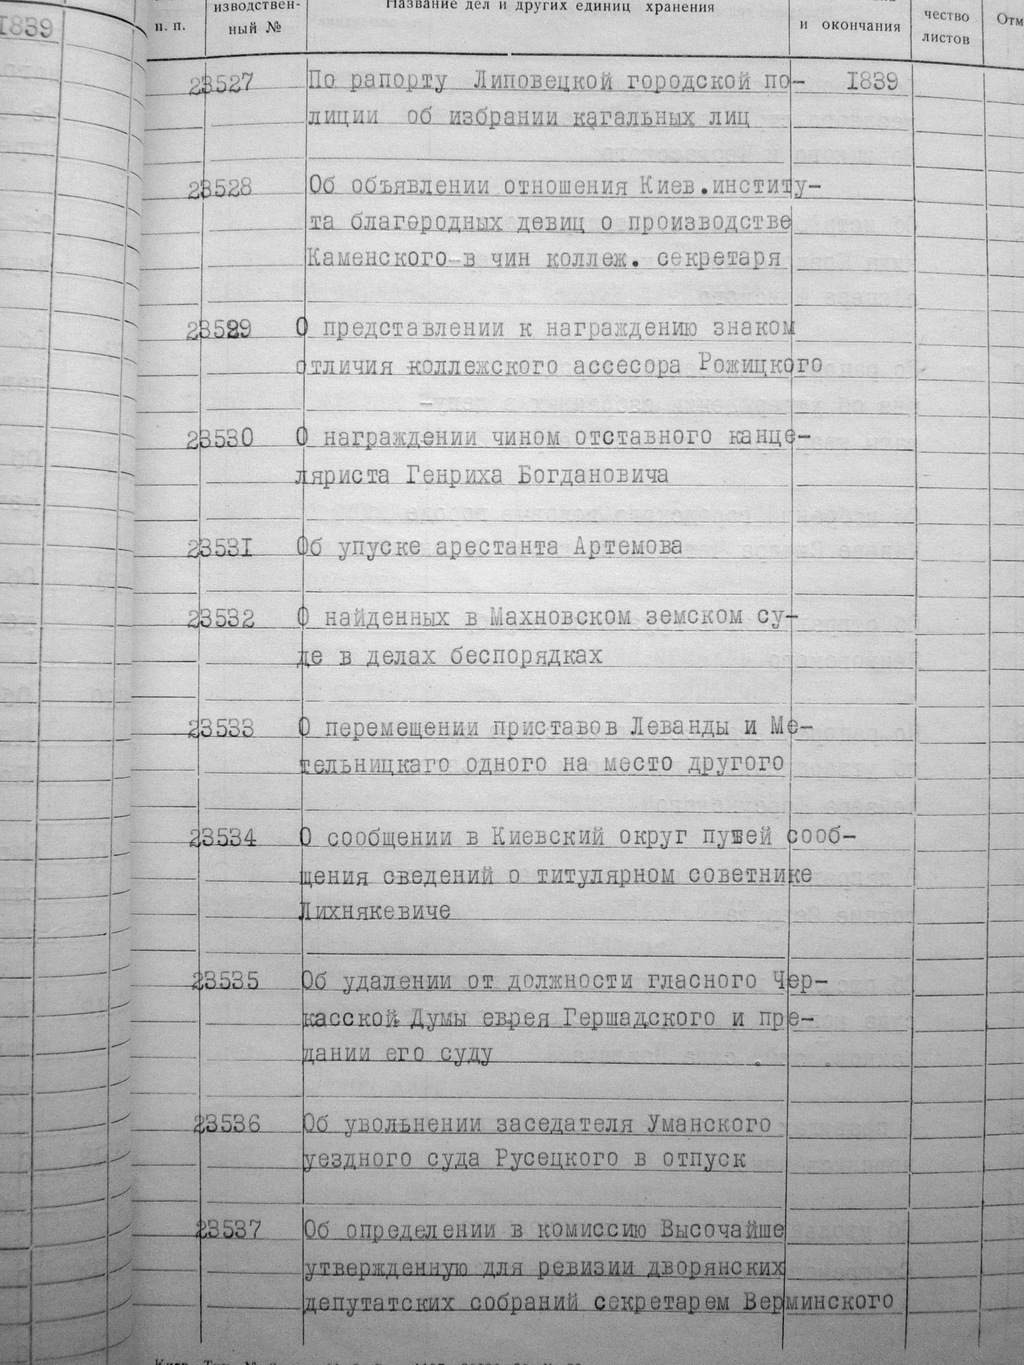 1839
п. п.
изводствен-
ный №
Название дел и других единиц хранения
и окончания
чество
листов
Отм
23527 По рапорту Липовецкой городской по- 1839
лиции об избрании кагальных лиц
23528 Об объявлении отношения Киев.институ-
та благородных девиц о производстве
Каменского в чин коллеж. секретаря
23529 О представлении к награждению знаком
отличия коллежского ассесора Рожицкого
23530 О награждении чином отставного канце-
ляриста Генриха Богдановича
23531 Об упуске арестанта Артемова
23532 О найденных в Махновском земском су-
де в делах беспорядках
23533 О перемещении приставов Леванды и Ме-
тельницкаго одного на место другого
23534 О сообщении в Киевский округ путей сооб-
щения сведений о титулярном советнике
Лихнякевиче
23535 Об удалении от должности гласного Чер-
касской Думы еврея Гершадского и пре-
дании его суду
23536 Об увольнении заседателя Уманского
уездного суда Русецкого в отпуск
23537 Об определении в комиссию Высочайше
утвержденную для ревизии дворянских
депутатских собраний секретарем Верминского